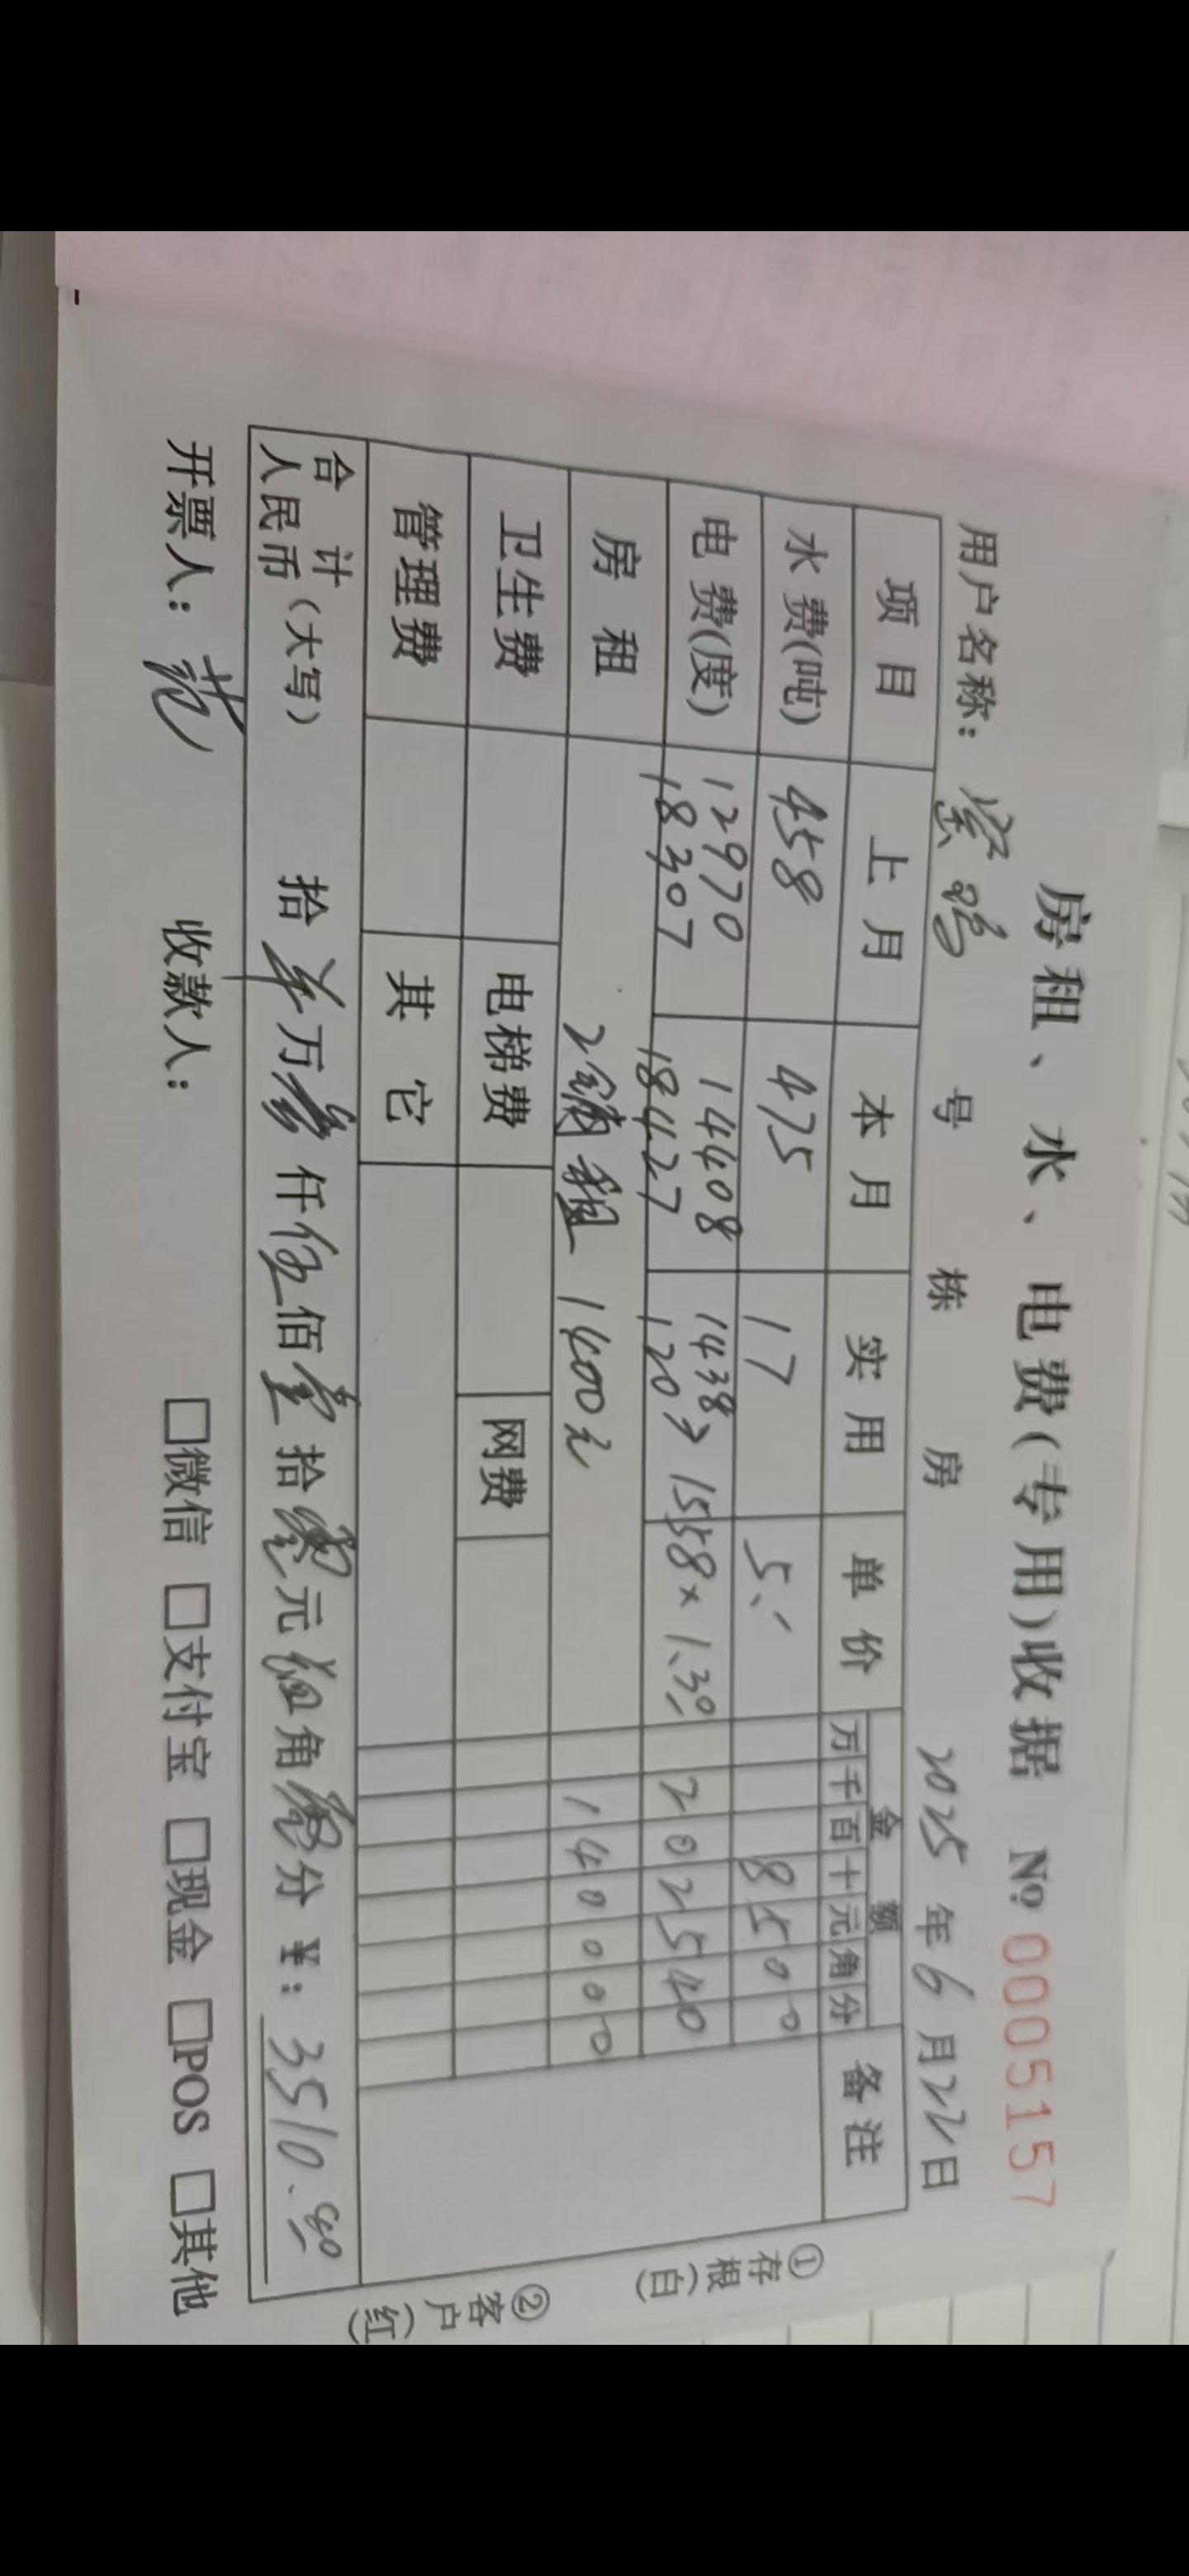 房租、水、电费(专用)收据 № 0005157
用户名称： 号 栋 房 2025 年 6 月 22 日
项目 上月 本月 实用 单价 金额 备注
万 千 百 十 元 角 分
水费(吨) 458 475 17 5.- 8 5 0 0
电费(度) 12970 14408 1438
18307 18427 120 > 1558×1.30 2 0 2 5 4 0
房租 2铺租 1400元 1 4 0 0 0 0
卫生费 电梯费 网费
管理费 其它
合计
人民币（大写） 拾 万 叁 仟 伍 佰 壹 拾 零 元 肆 角 零 分 ¥：3510.40
开票人：范 收款人： □微信 □支付宝 □现金 □POS □其他
①存根(白)
②客户(红)